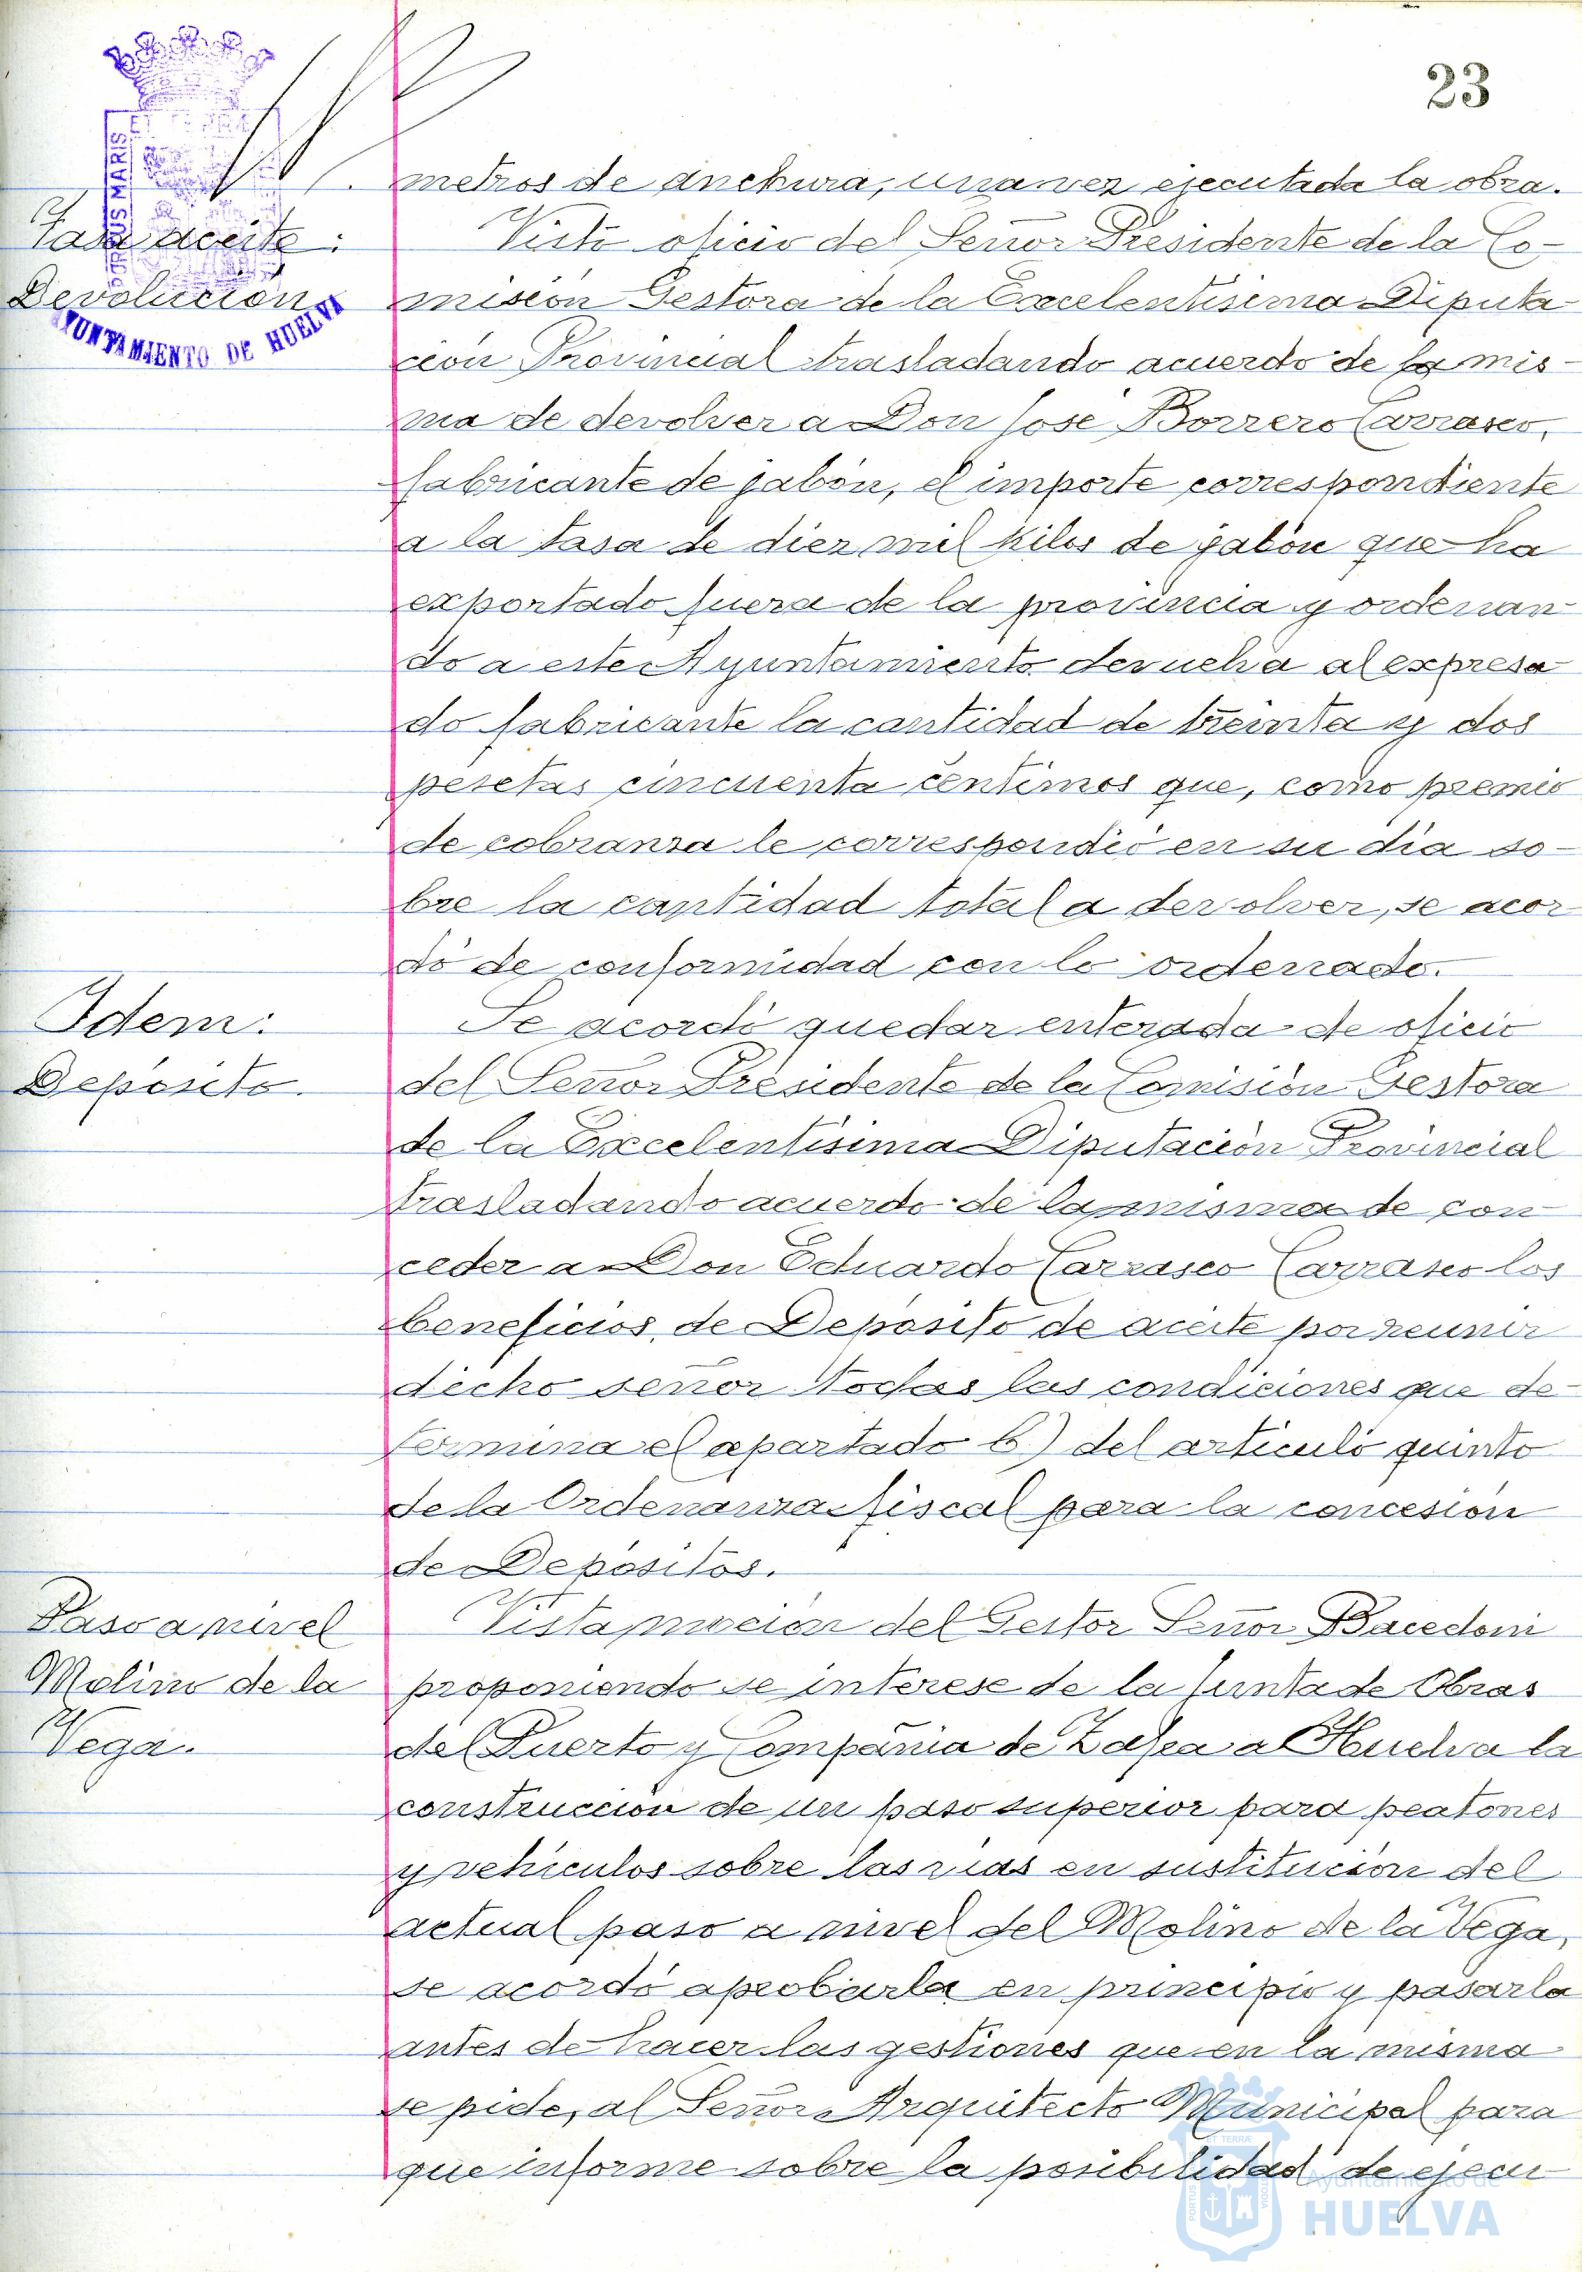 23
metros de anchura, una vez ejecutada la obra.
Tasa aceite:
Devolución
PORTUS MARIS
AYUNTAMIENTO DE HUELVA
Visto oficio del Señor Presidente de la Co-
misión Gestora de la Excelentísima Diputa-
ción Provincial trasladando acuerdo de la mis-
ma de devolver a Don José Borrero Carrasco,
fabricante de jabón, el importe correspondiente
a la tasa de diez mil kilos de jabón que ha
exportado fuera de la provincia y ordenan-
do a este Ayuntamiento devuelva al expresa-
do fabricante la cantidad de treinta y dos
pesetas cincuenta centimos que, como premio
de cobranza le correspondió en su dia so-
bre la cantidad total a devolver, se acor-
dó de conformidad con lo ordenado.
Idem:
Depósito.
Se acordó quedar enterada de oficio
del Señor Presidente de la Comisión Gestora
de la Excelentísima Diputación Provincial
trasladando acuerdo de la misma de con-
ceder a Don Eduardo Carrasco Carrasco los
beneficios de Depósito de aceite por reunir
dicho señor todas las condiciones que de-
termina el apartado b) del articulo quinto
de la Ordenanza fiscal para la concesión
de Depósitos.
Paso a nivel
Molino de la
Vega.
Vista moción del Gestor Señor Bacedoni
proponiendo se interese de la Junta de Obras
del Puerto y Compañia de Zafra a Huelva la
construcción de un paso superior para peatones
y vehículos sobre las vias en sustitución del
actual paso a nivel del Molino de la Vega,
se acordó aprobarla en principio y pasarla
antes de hacer las gestiones que en la misma
se pide, al Señor Arquitecto Municipal para
que informe sobre la posibilidad de ejecu-
Ayuntamiento de
HUELVA